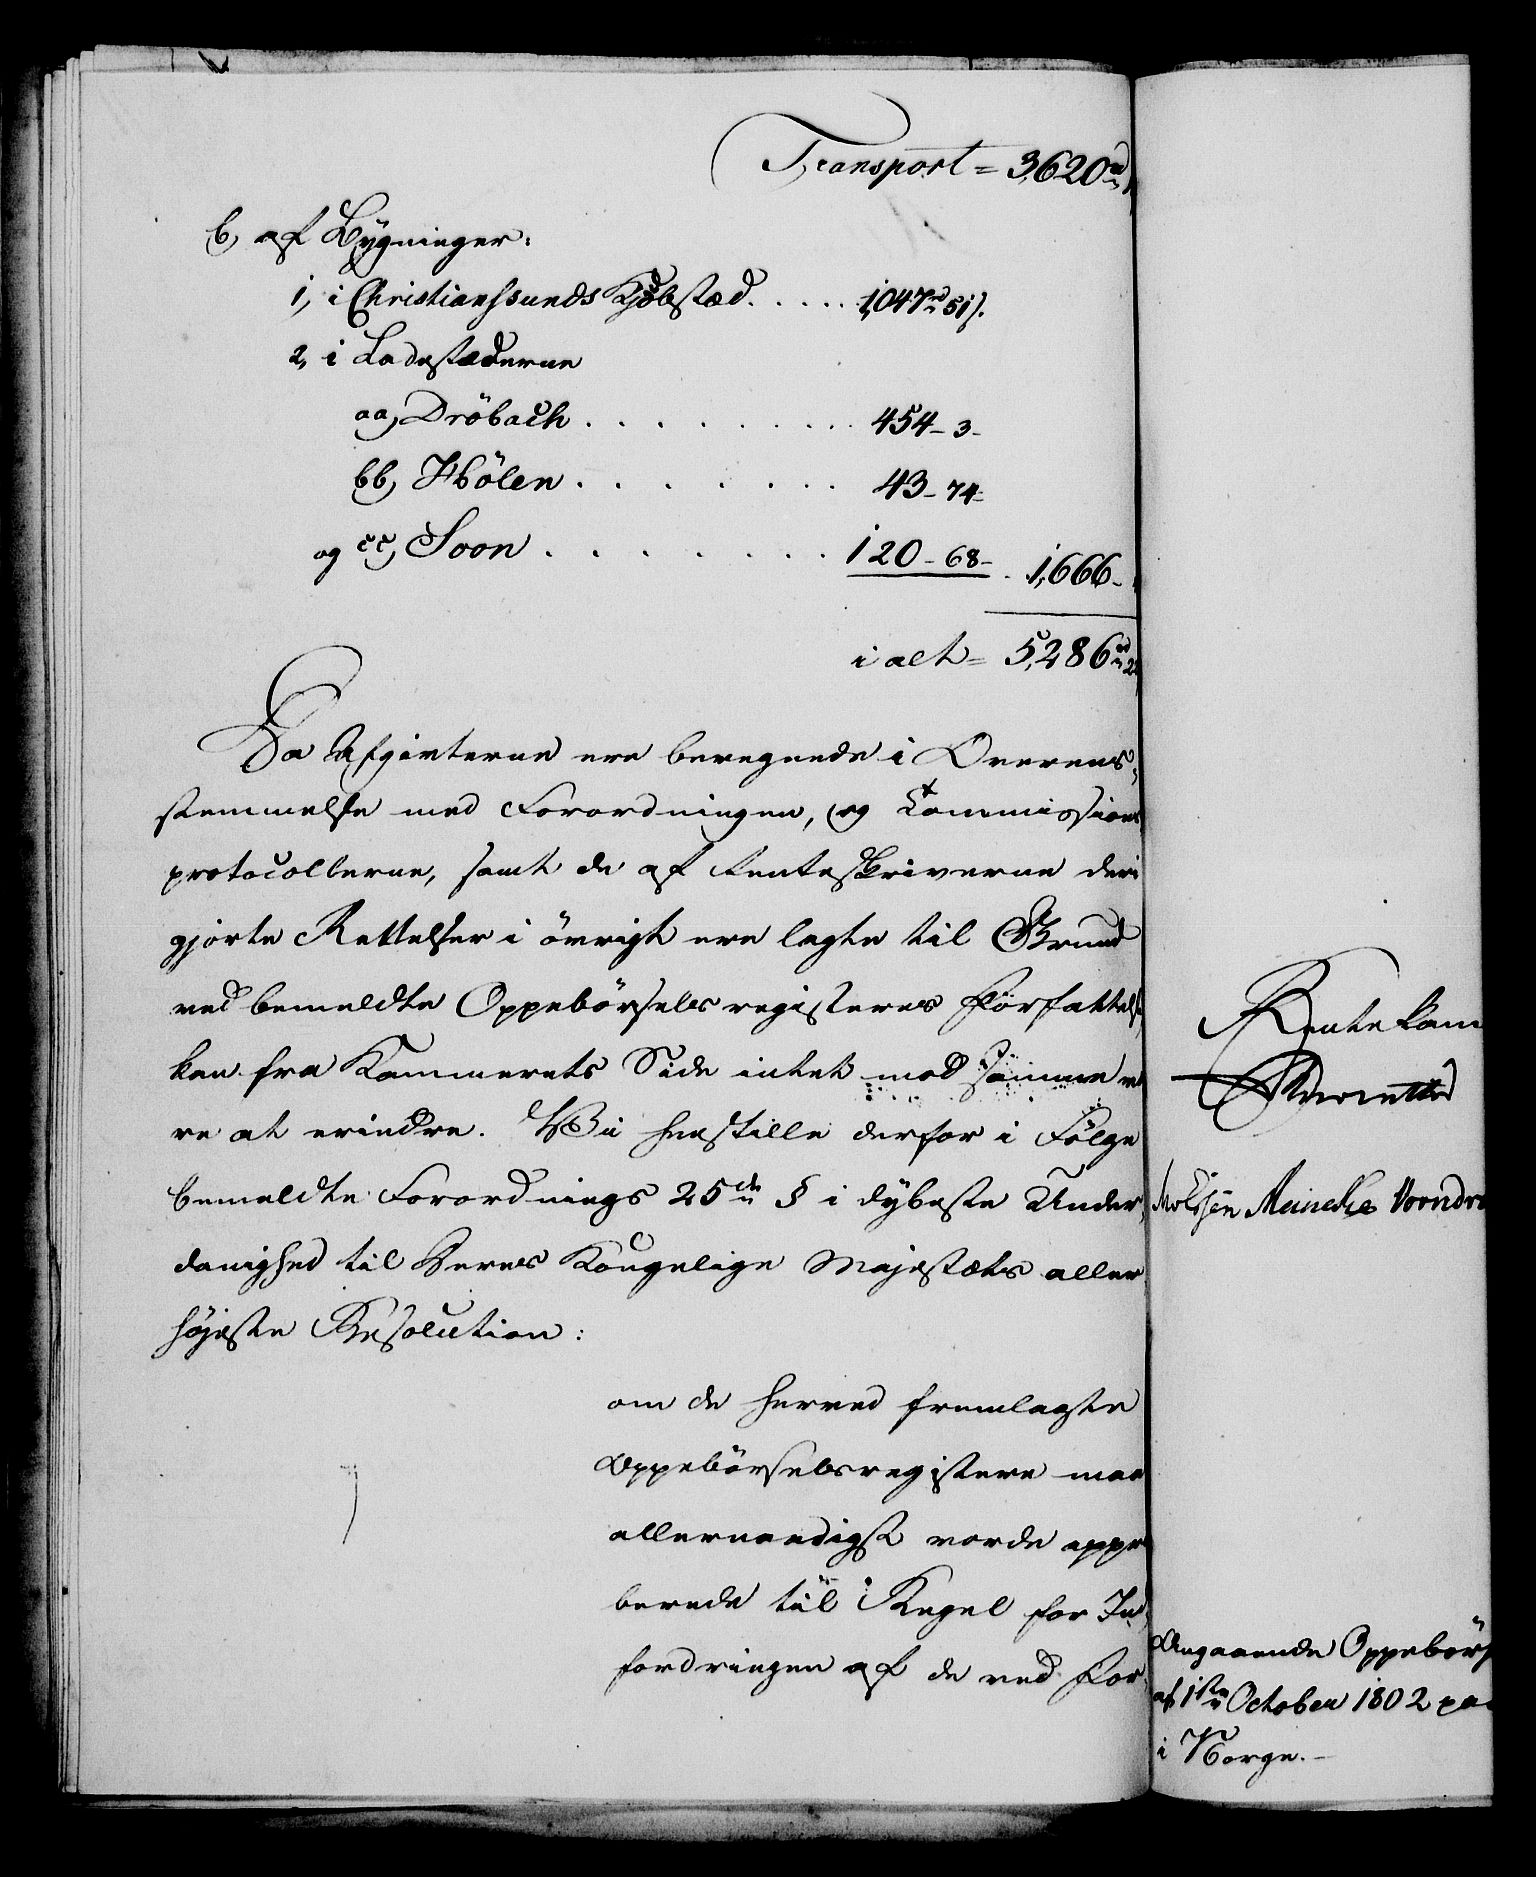 Transport = 3,620 rd
b, af Bygninger:
1, i Christianssunds Kjøbstæd. . . . . . 1,047 rd 51 s.
2, i Ladestæderne
aa, Dröbach . . . . . . . . . 454 - 3 -
bb, Hölen . . . . . . . . 43 - 74 -
og cc, Soon . . . . . . . 120 - 68 - . 1,666 -
i alt = 5,286 rd
Da Afgivterne ere beregnede i Overens-
stemmelse med Forordningen, og Commissions
protocollerne, samt de af Renteskriverne deri
gjorte Rettelser i övrigt ere lagte til Grund
ved bemeldte Oppebörselsregisteres Forfattelse
kan fra Kammerets Side intet mod samme væ
re at erindre. Vi henstille derfor i Fölge
bemeldte Forordnings 25de § i dybeste Under
danighed til Deres Kongelige Majestæts aller
höjeste Resolution:
om de herved fremlagte
Oppebörselsregistere maae
allernaadigst vorde appro
berede til Regel for Ind
fordringen af de ved For
Rentekam
Meinecke
Angaaende Oppebörs
af 1ste October 1802 paa
i Norge. -